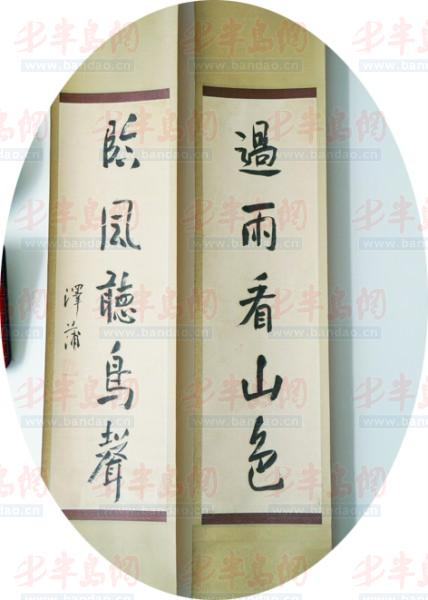 過雨看山色
臨風聽鳥聲
澤蒲
半島網
www.bandao.cn